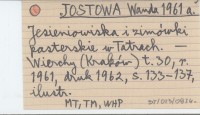 JOSTOWA Wanda 1961 a.
Jesieniowiska i zimówki
pasterskie w Tatrach. —
Wierchy (Kraków) t. 30, r.
1961, druk 1962, s. 133-137,
ilustr.
MT, TM, WHP